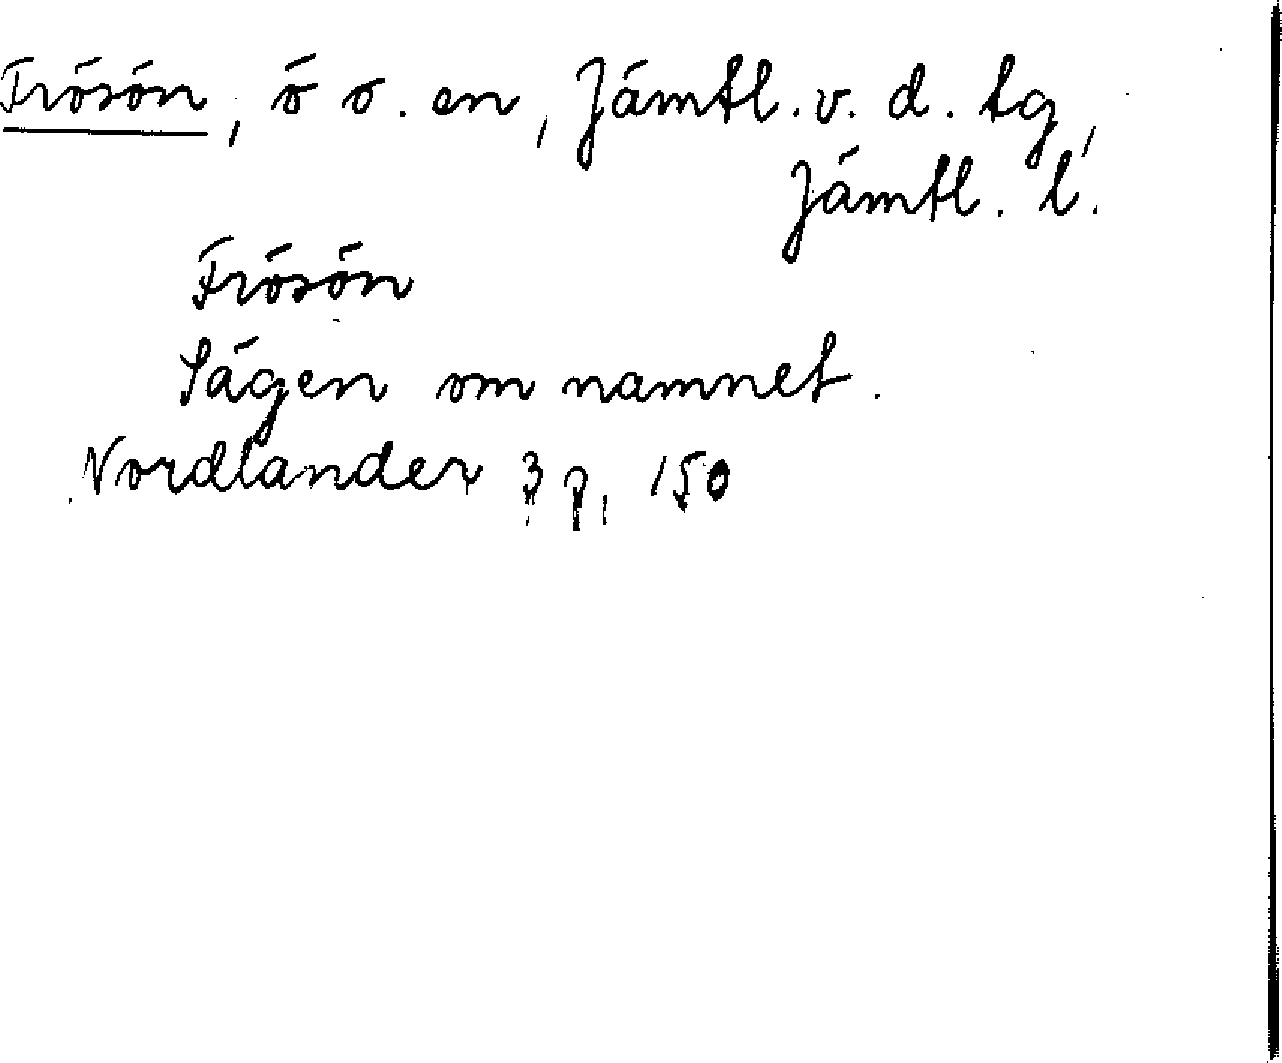 Frösön, ö o. en, Jämtl. v. d. tg,
Jämtl. l.
Frösön
Sägen om namnet.
Nordlander 3 p. 150